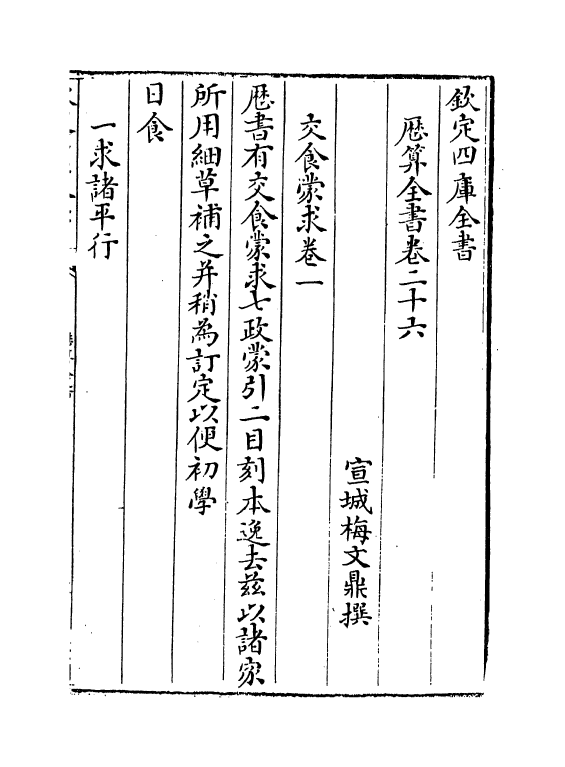 欽定四庫全書
厯算全書卷二十六
宣城梅文鼎撰
交食蒙求卷一
厯書有交食蒙求七政蒙引二目刻本逸去兹以諸家
所用細草補之并稍為訂定以便初學
日食
一求諸平行